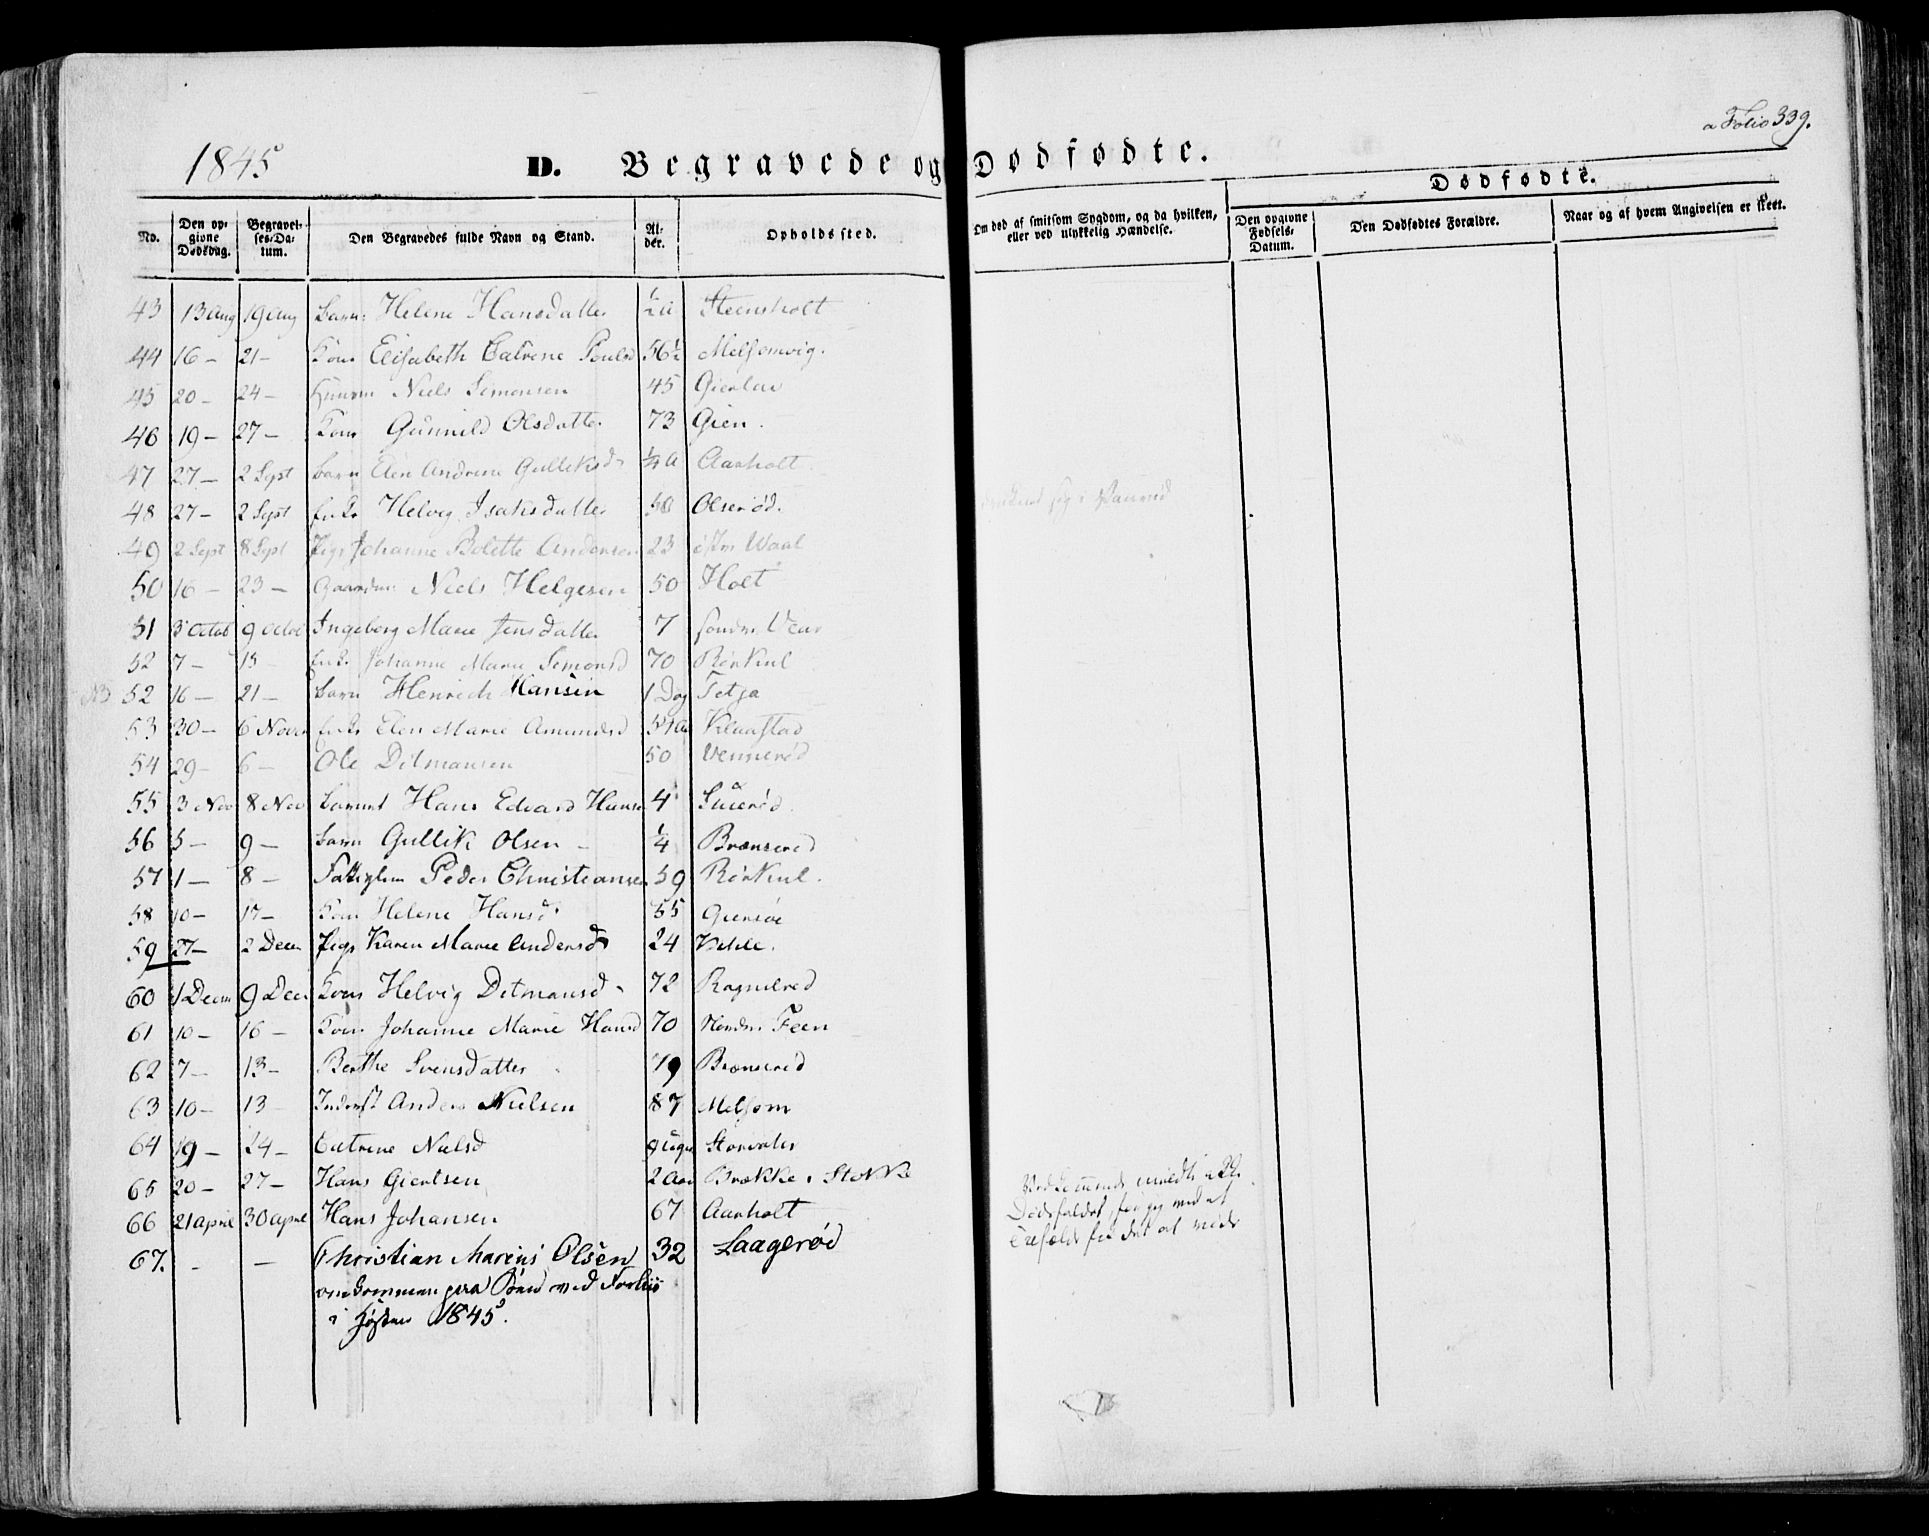 a Folio 339.
1845
D. Begravede og Dødfødte.
Dødfødte.
No. Den opgivne Dødsdag. Begravelses-Datum. Den Begravedes fulde Navn og Stand. Alder. Opholdssted. Om død af smitsom Sygdom, og da hvilken, eller ved ulykkelig Hændelse. Den opgivne Fødsels-Datum. Den Dødfødtes Forældre. Naar og af hvem Angivelsen er skeet.
43 13 Aug 19 Aug Barn Helene Hansdatter ½ a Steensholt
44 16 - 21 - Kone Elisabeth Catrine Poulsd 56½ Melsomvig.
45 20 - 24 - Niels Simonsen 45
46 19 - 27 - Kone Gunnild Olsdatter 73 Gien.
47 27 - 2 Sept Barn Elen Andrine Gulliksd ¼ a Aarholt
48 27 - 2 Sept Enke Helvig Isaksdatter 50 Olserød. i
49 2 Sept 8 Sept Pige Johanne Bolette Andersen 23 østre Waal
50 16 - 23 - Gaardm Niels Helgesen 50 Holt
51 3 Octob 9 Octob Ingeborg Marie Jensdatter 7 søndre Vear
52 7 - 13 - Enke Johanne Marie Simonsd 70 Rørkul
NB 52 16 - 21 - Barn Henrich Hansen 1 Dag
53 30 - 6 Novbr Enke Elen Marie Amundsd Klaastad
54 29 - 6 - Ole Ditmansen 50 Vennerød
55 3 Nov 8 Nov Barnet Hans Edvard Hansen 4
56 5 - 9 - Barn Gullik Olsen - ¼ Brænserød
57 1 - 8 - Fattiglem Peder Christiansen 59 Rørkul.
58 10 - 17 - Kone Helene Hansd 55 Giersøe
59 27 - 2 Decem Pige Karen Marie Andersd 24
60 1 Decm 9 Dec Kone Helvig Ditmansd 72 Ragnerød
61 10 - 16 - Kone Johanne Marie Hansd 70 Nordre Feen
62 7 - 13 - Berthe Svensdatter 79 Brænserød
63 10 - 13 Inderst Anders Nielsen 87 Melsom
64 19 - 24 - Catrine Nielsd 9 Uger
65 20 - 27 - Hans Giertsen 2 Aar Brække i Stokke
66 21 april 30 april Hans Johansen 67 Aarholt
67. - - Christian Marius Olsen 32 Laagerød
omkommen paa ved
i Høsten 1845.